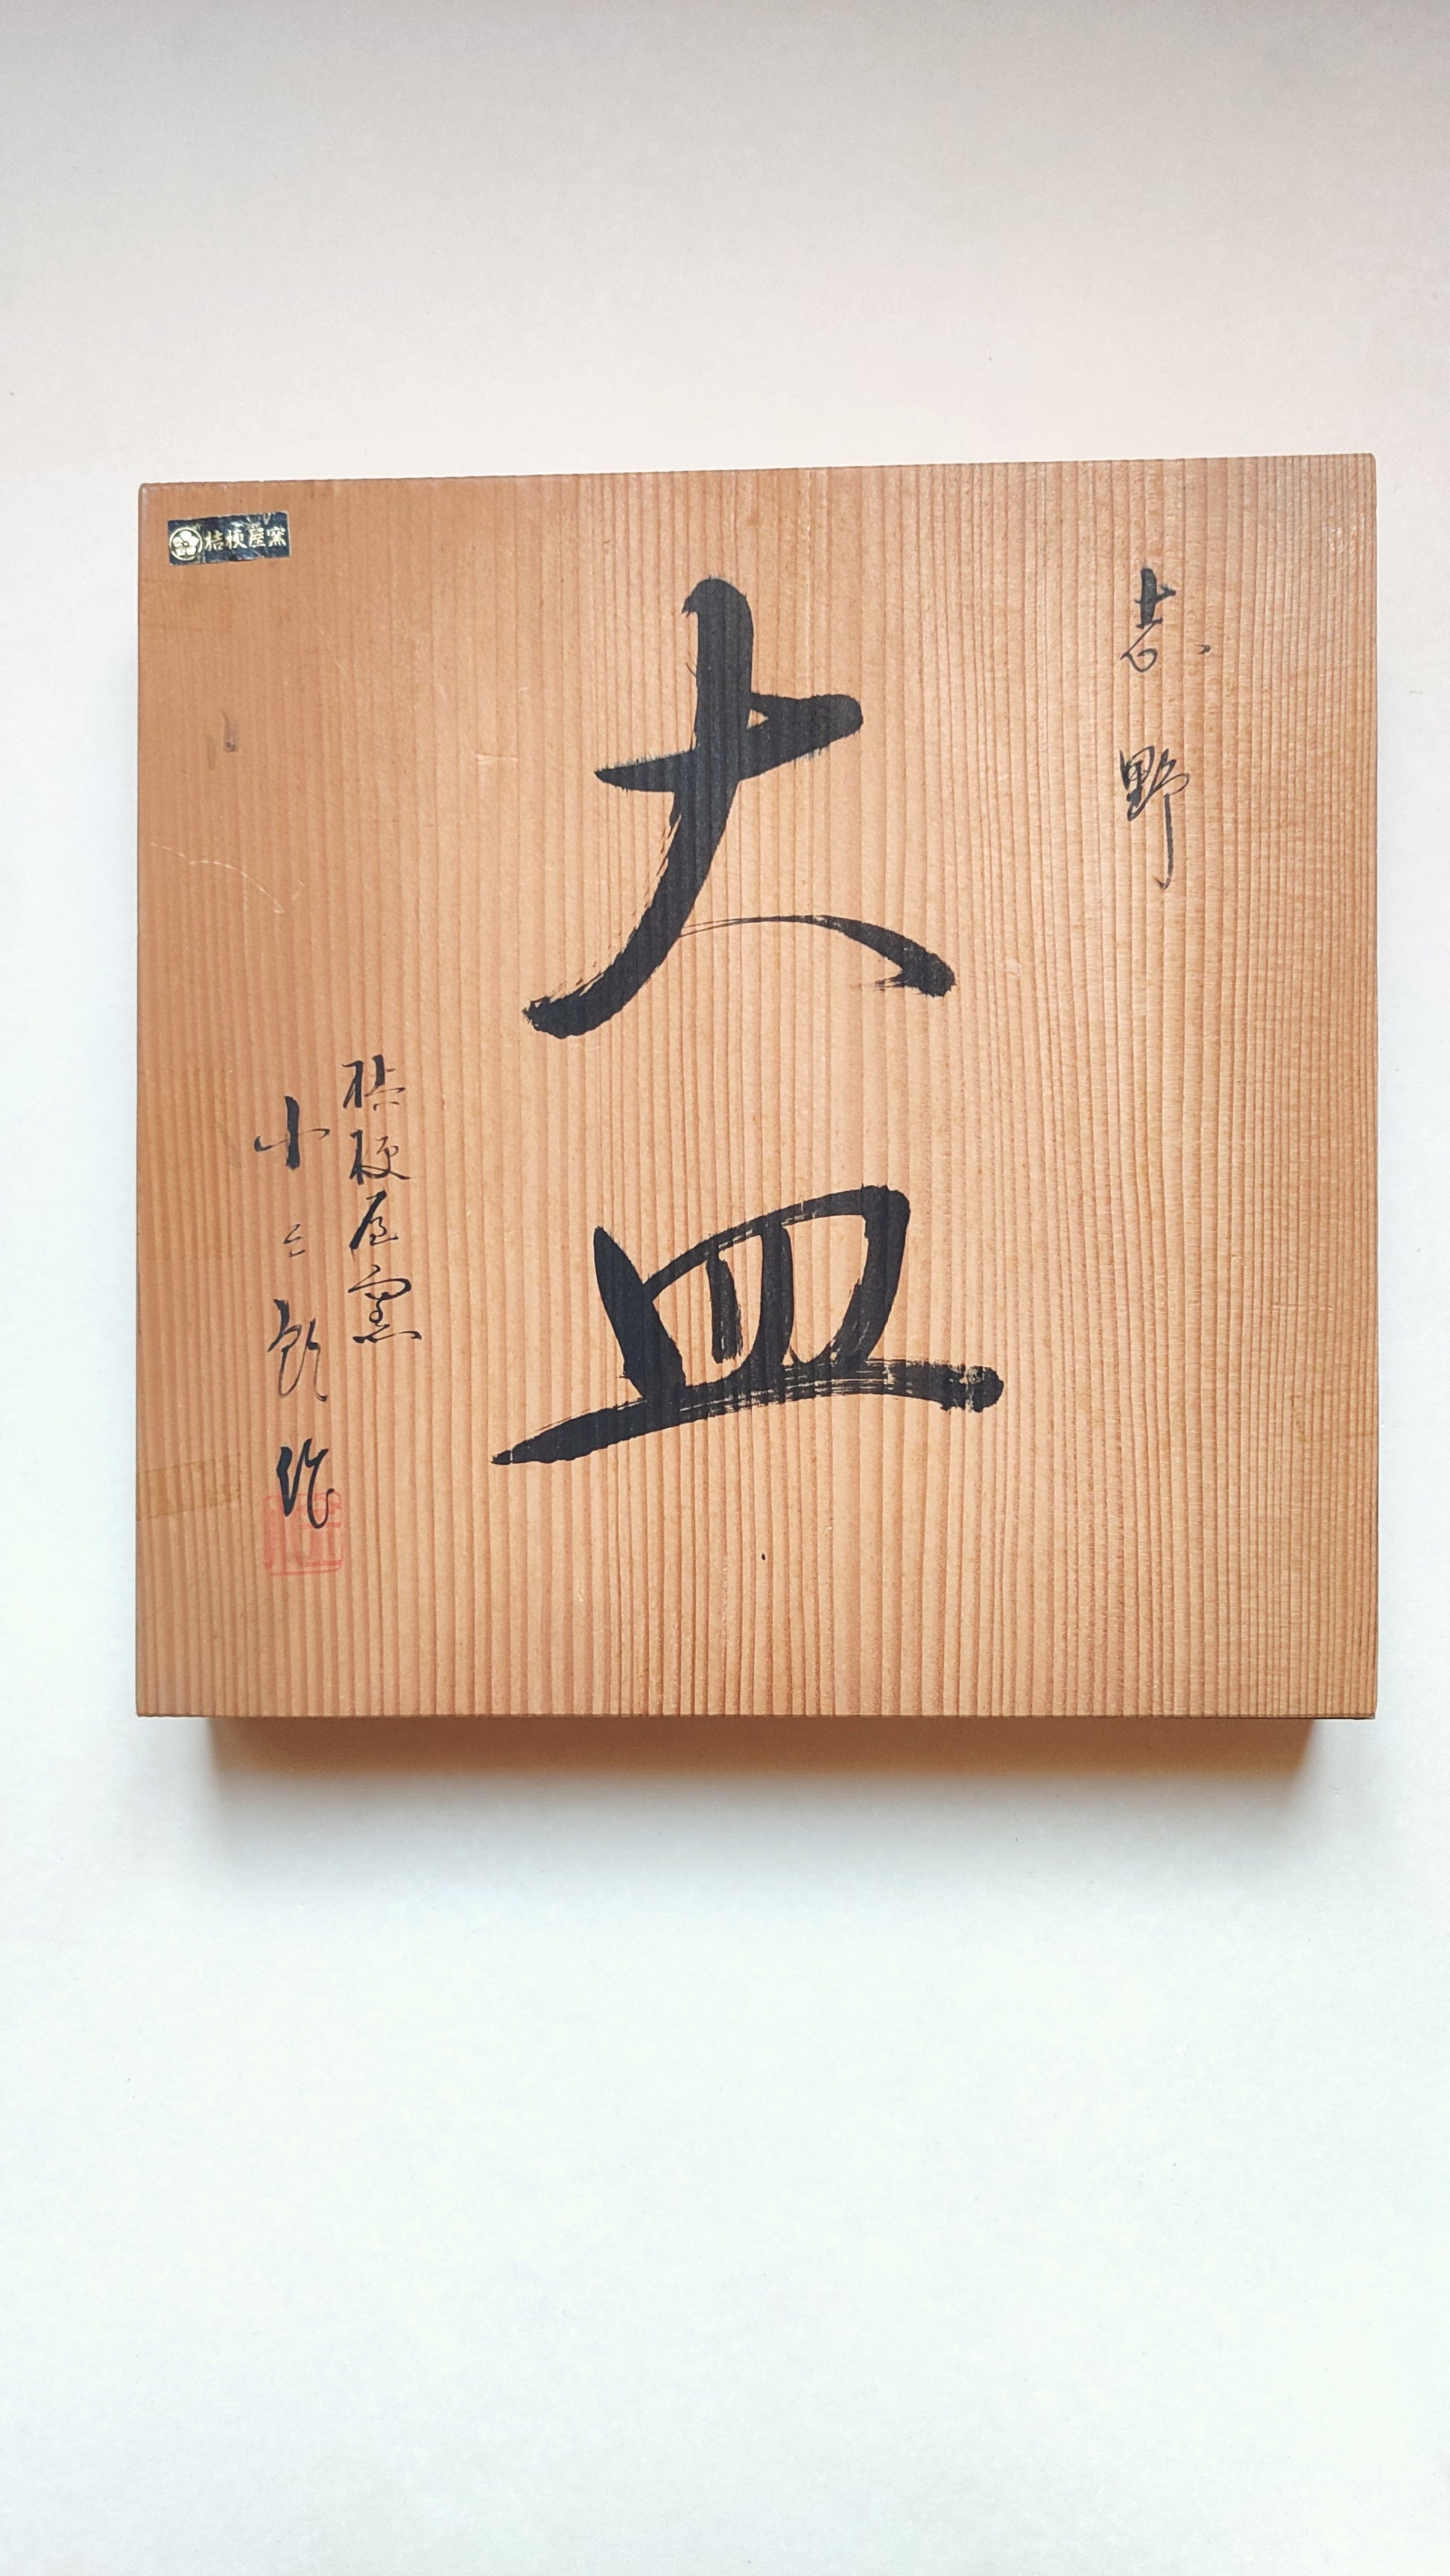 志野
大皿
桔梗屋窯
小三郎作
桔梗屋窯